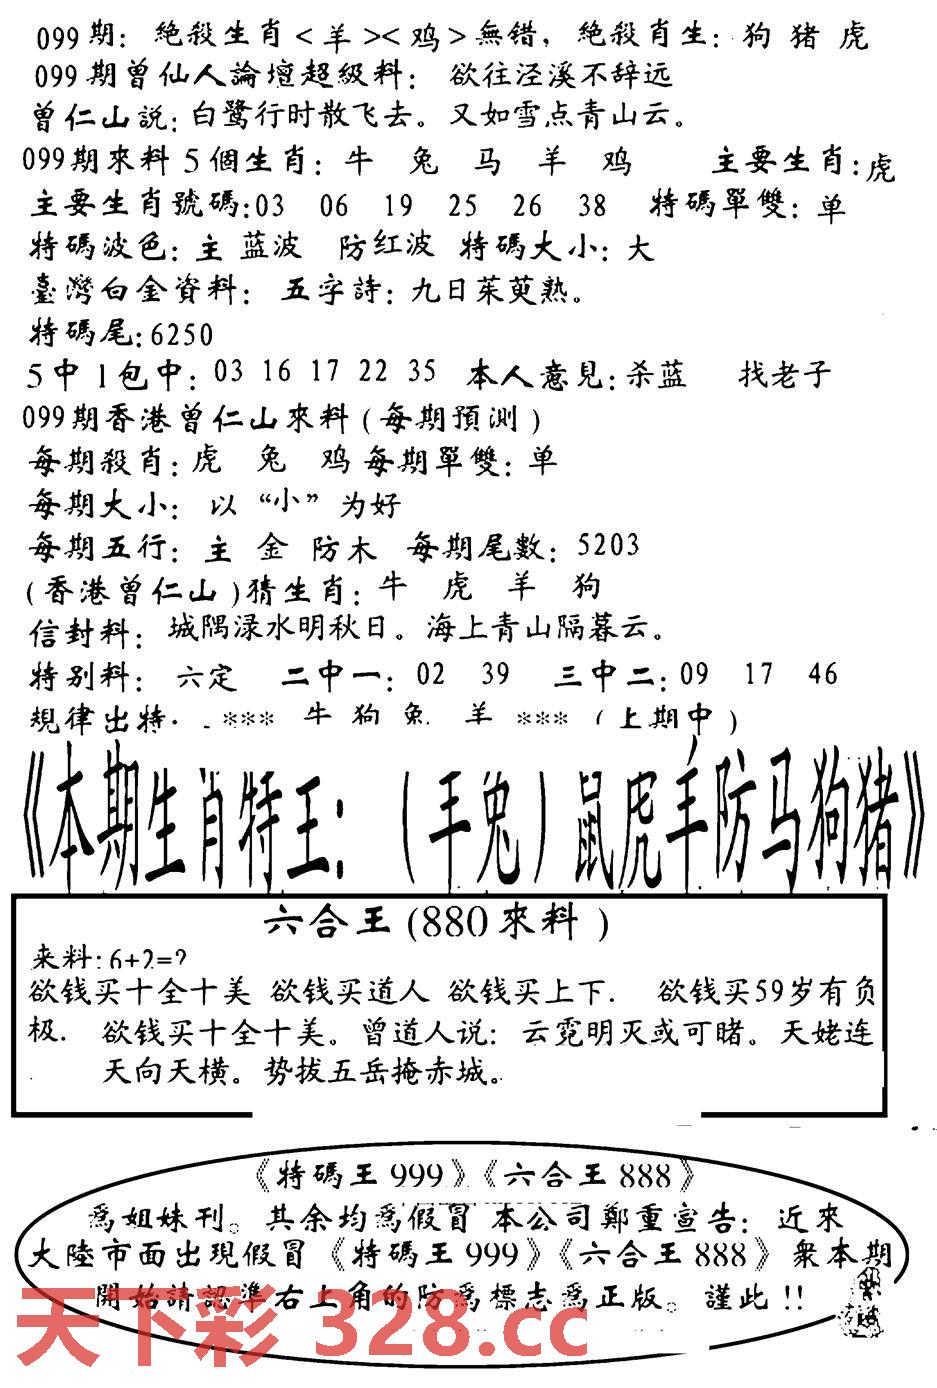 099期: 絶殺生肖<羊><鸡>無错, 絶殺肖生: 狗 猪 虎
099期曾仙人論壇超級料: 欲往泾溪不辞远
曾仁山説: 白鹭行时散飞去。又如雪点青山云。
099期來料5個生肖: 牛 兔 马 羊 鸡 主要生肖: 虎
主要生肖號碼:03 06 19 25 26 38 特碼單雙: 单
特碼波色: 主 蓝波 防红波 特碼大小: 大
臺灣白金資料: 五字詩: 九日茱萸熟。
特碼尾:6250
5中1包中: 03 16 17 22 35 本人意見: 杀蓝 找老子
099期香港曾仁山來料(每期預測)
每期殺肖: 虎 兔 鸡 每期單雙: 单
每期大小: 以“小”为好
每期五行: 主 金 防木 每期尾數: 5203
(香港曾仁山)猜生肖: 牛 虎 羊 狗
信封料: 城隅渌水明秋日。海上青山隔暮云。
特别料: 六定 二中一: 02 39 三中二: 09 17 46
規律出特. *** 牛 狗 兔 羊 *** (上期中)
《本期生肖特王: (羊兔) 鼠虎羊防马狗猪》
六合王(880來料)
来料: 6+2=?
欲钱买十全十美 欲钱买道人 欲钱买上下. 欲钱买59岁有负
极. 欲钱买十全十美。曾道人说: 云霓明灭或可睹。天姥连
天向天横。势拔五岳掩赤城。
《特碼王999》《六合王888》
爲姐妹刊。其余均爲假冒 本公司鄭重宣告: 近來
大陸市面出現假冒《特碼王999》《六合王888》衆本期
開始請認準右上角的防爲標志爲正版。謹此!!
天下彩 328.cc